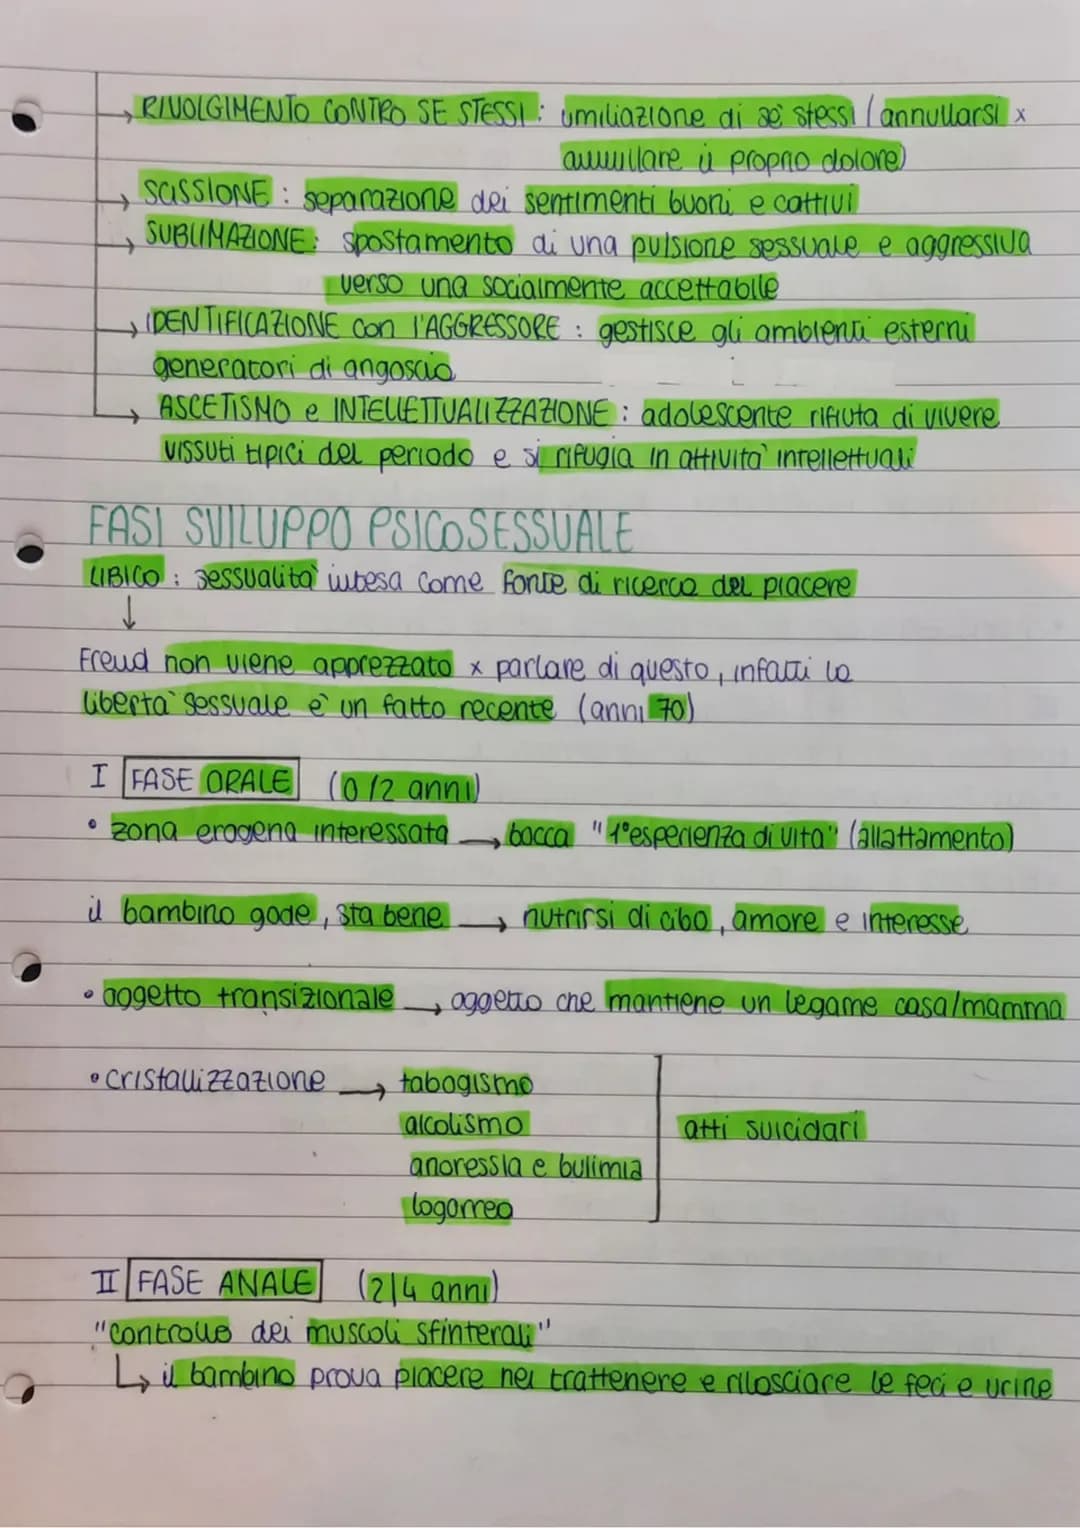 → RIVOLGIMENTO CONTRO SE STESSI : umiliazione di se' stessi (annullarsi x
annullare il proprio dolore)
→ SCISSIONE : separazione dei sentimenti buoni e cattivi
→ SUBLIMAZIONE : spostamento di una pulsione sessuale e aggressiva
verso una socialmente accettabile
→ IDENTIFICAZIONE con l'AGGRESSORE : gestisce gli ambienti esterni
generatori di angoscia
→ ASCETISMO e INTELLETTUALIZZAZIONE : adolescente rifiuta di vivere
vissuti tipici del periodo e si rifugia in attivita' intellettuali
FASI SVILUPPO PSICOSESSUALE
LIBICO : sessualita' intesa come fonte di ricerca del piacere
↓
Freud non viene apprezzato x parlare di questo, infatti la
liberta' sessuale e' un fatto recente (anni 70)
I FASE ORALE (0/2 anni)
• zona erogena interessata → bocca "1° esperienza di vita" (allattamento)
il bambino gode, sta bene → nutrirsi di cibo, amore e interesse
• oggetto transizionale → oggetto che mantiene un legame casa/mamma
• cristallizzazione → tabagismo
alcolismo
atti suicidari
anoressia e bulimia
logorrea
II FASE ANALE (2/4 anni)
"controllo dei muscoli sfinterali"
↳ il bambino prova piacere nel trattenere e rilasciare le feci e urine